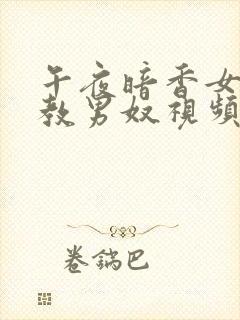 午夜暗香女
教男奴視頻
卷鍋巴